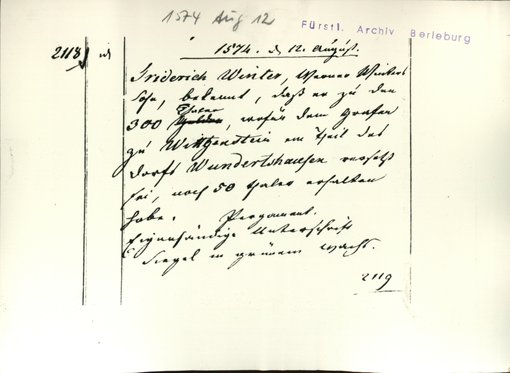 1574 Aug 12
Fürstl. Archiv Berleburg
2118
1574. d. 12. August.
Friderich Winter, Werner Winters
Sohn, bekennt, daß er zu den
300 Thaler, wofür dem Grafen
zu Wittgenstein ein Theil des
Dorfs Wundertshausen versetzt
sei, noch 50 Thaler erhalten
habe. Pergament.
Eigenhändige Unterschrift
Siegel in grünem Wachs.
2119